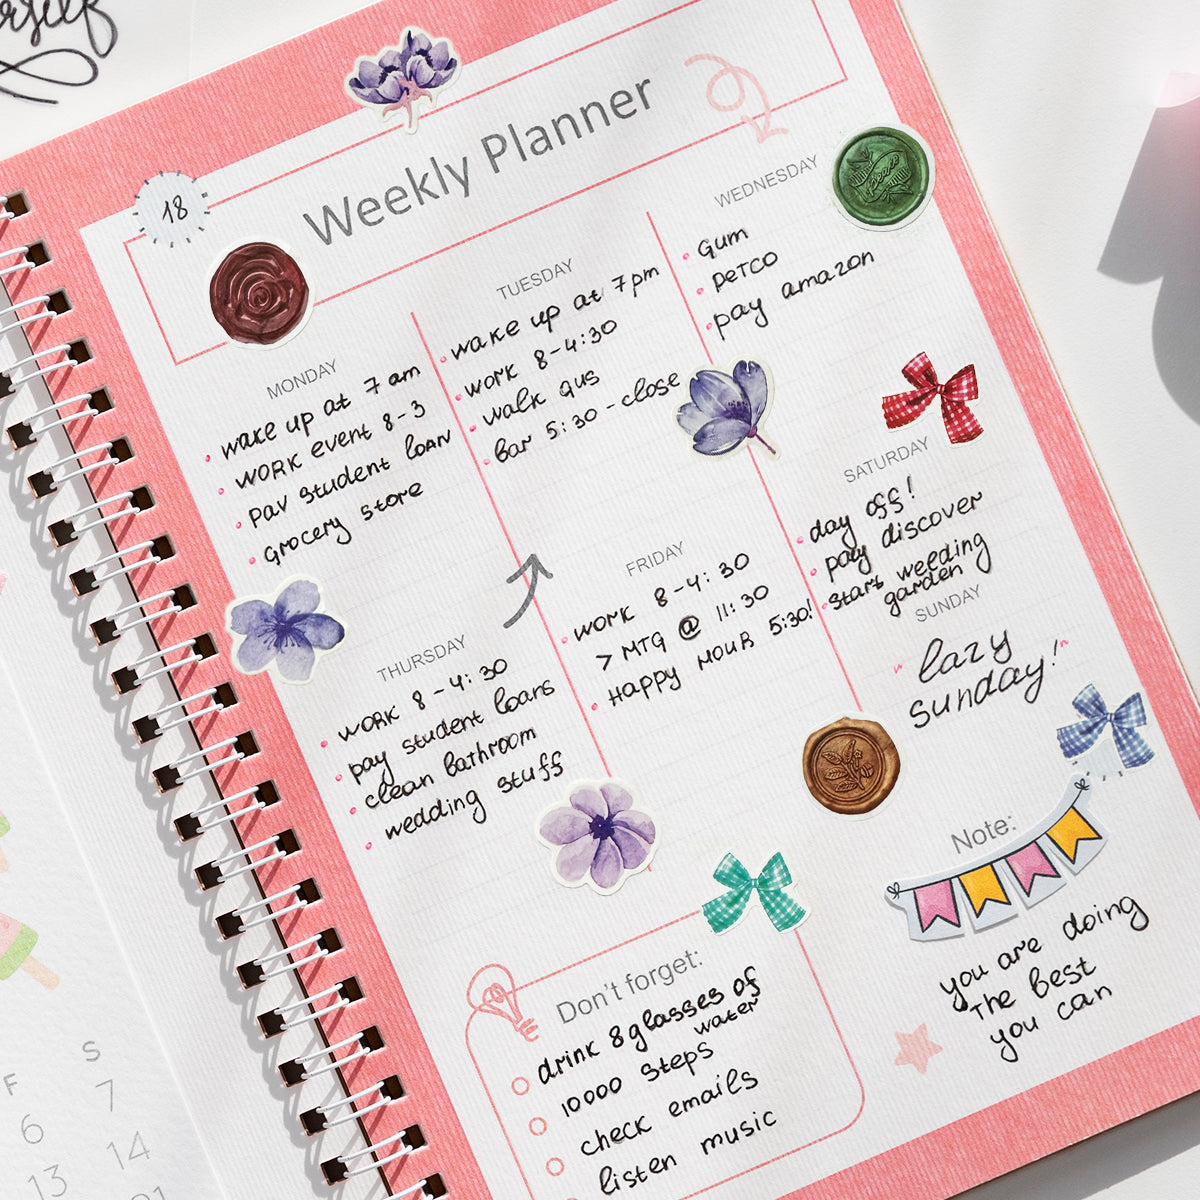 18
Weekly Planner
MONDAY
wake up at 7 am
WORK event 8-3
pav student loan
grocery store
TUESDAY
wake up at 7pm
work 8-4:30
walk gus
bar 5:30-close
WEDNESDAY
Gum
PETCO
pay amazon
THURSDAY
WORK 8-4:30
pay student loans
clean bathroom
wedding stuff
FRIDAY
WORK 8-4:30
> MTG @ 11:30
Happy HOUR 5:30!
SATURDAY
day off!
pay discover
start weeding
garden
SUNDAY
"lazy
sunday!"
Don't forget:
drink 8 glasses of
water
10000 steps
check emails
listen music
Note:
you are doing
The best
you can
F S
6 7
13 14